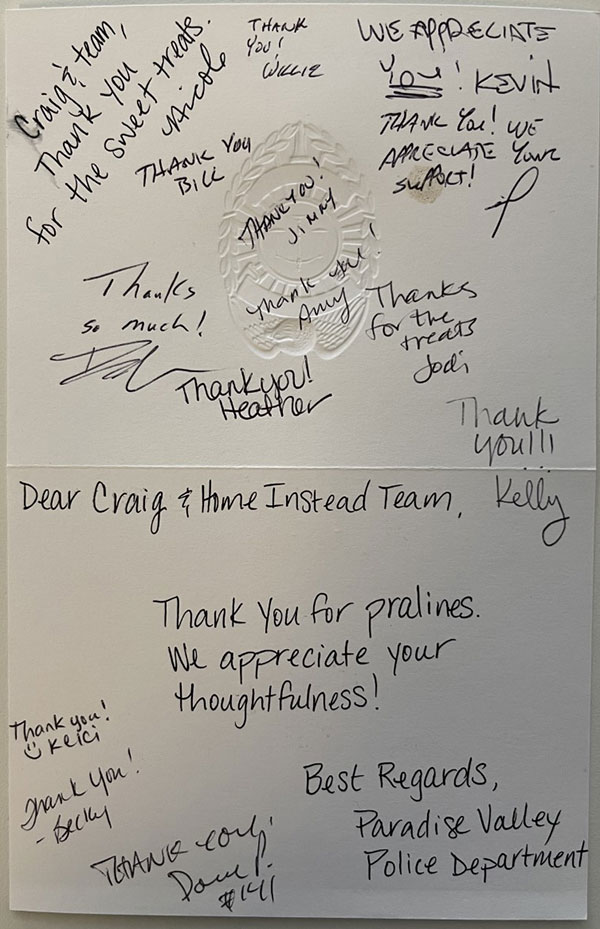 Craig & team,
Thank you
for the sweet treats.
Nicole
THANK
YOU!
WILLIE
WE APPRECIATE
YOU! KEVIN
THANK YOU! WE
APPRECIATE YOUR
SUPPORT!
THANK YOU
BILL
THANK YOU!
JIMMY
Thanks
so much!
Thank you!
Amy
Thanks
for the
treats
Jodi
Thankyou!
Heather
Thank
you!!!
Kelly
Dear Craig & Home Instead Team,
Thank you for pralines.
We appreciate your
thoughtfulness!
Thank you!
☺ Keici
Thank you!
- Becky
THANK YOU!
#141
Best Regards,
Paradise Valley
Police Department